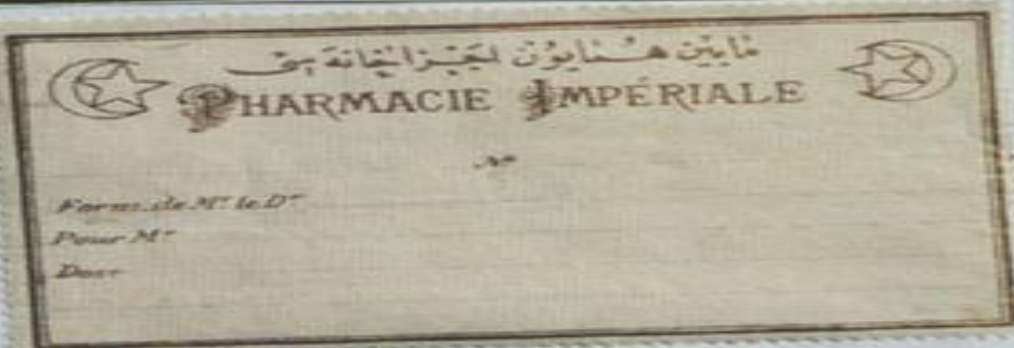 مابين همايون اجزاخانه سی
PHARMACIE IMPÉRIALE
Nº
Form. de Mr le Dr
Pour Mr
Dose